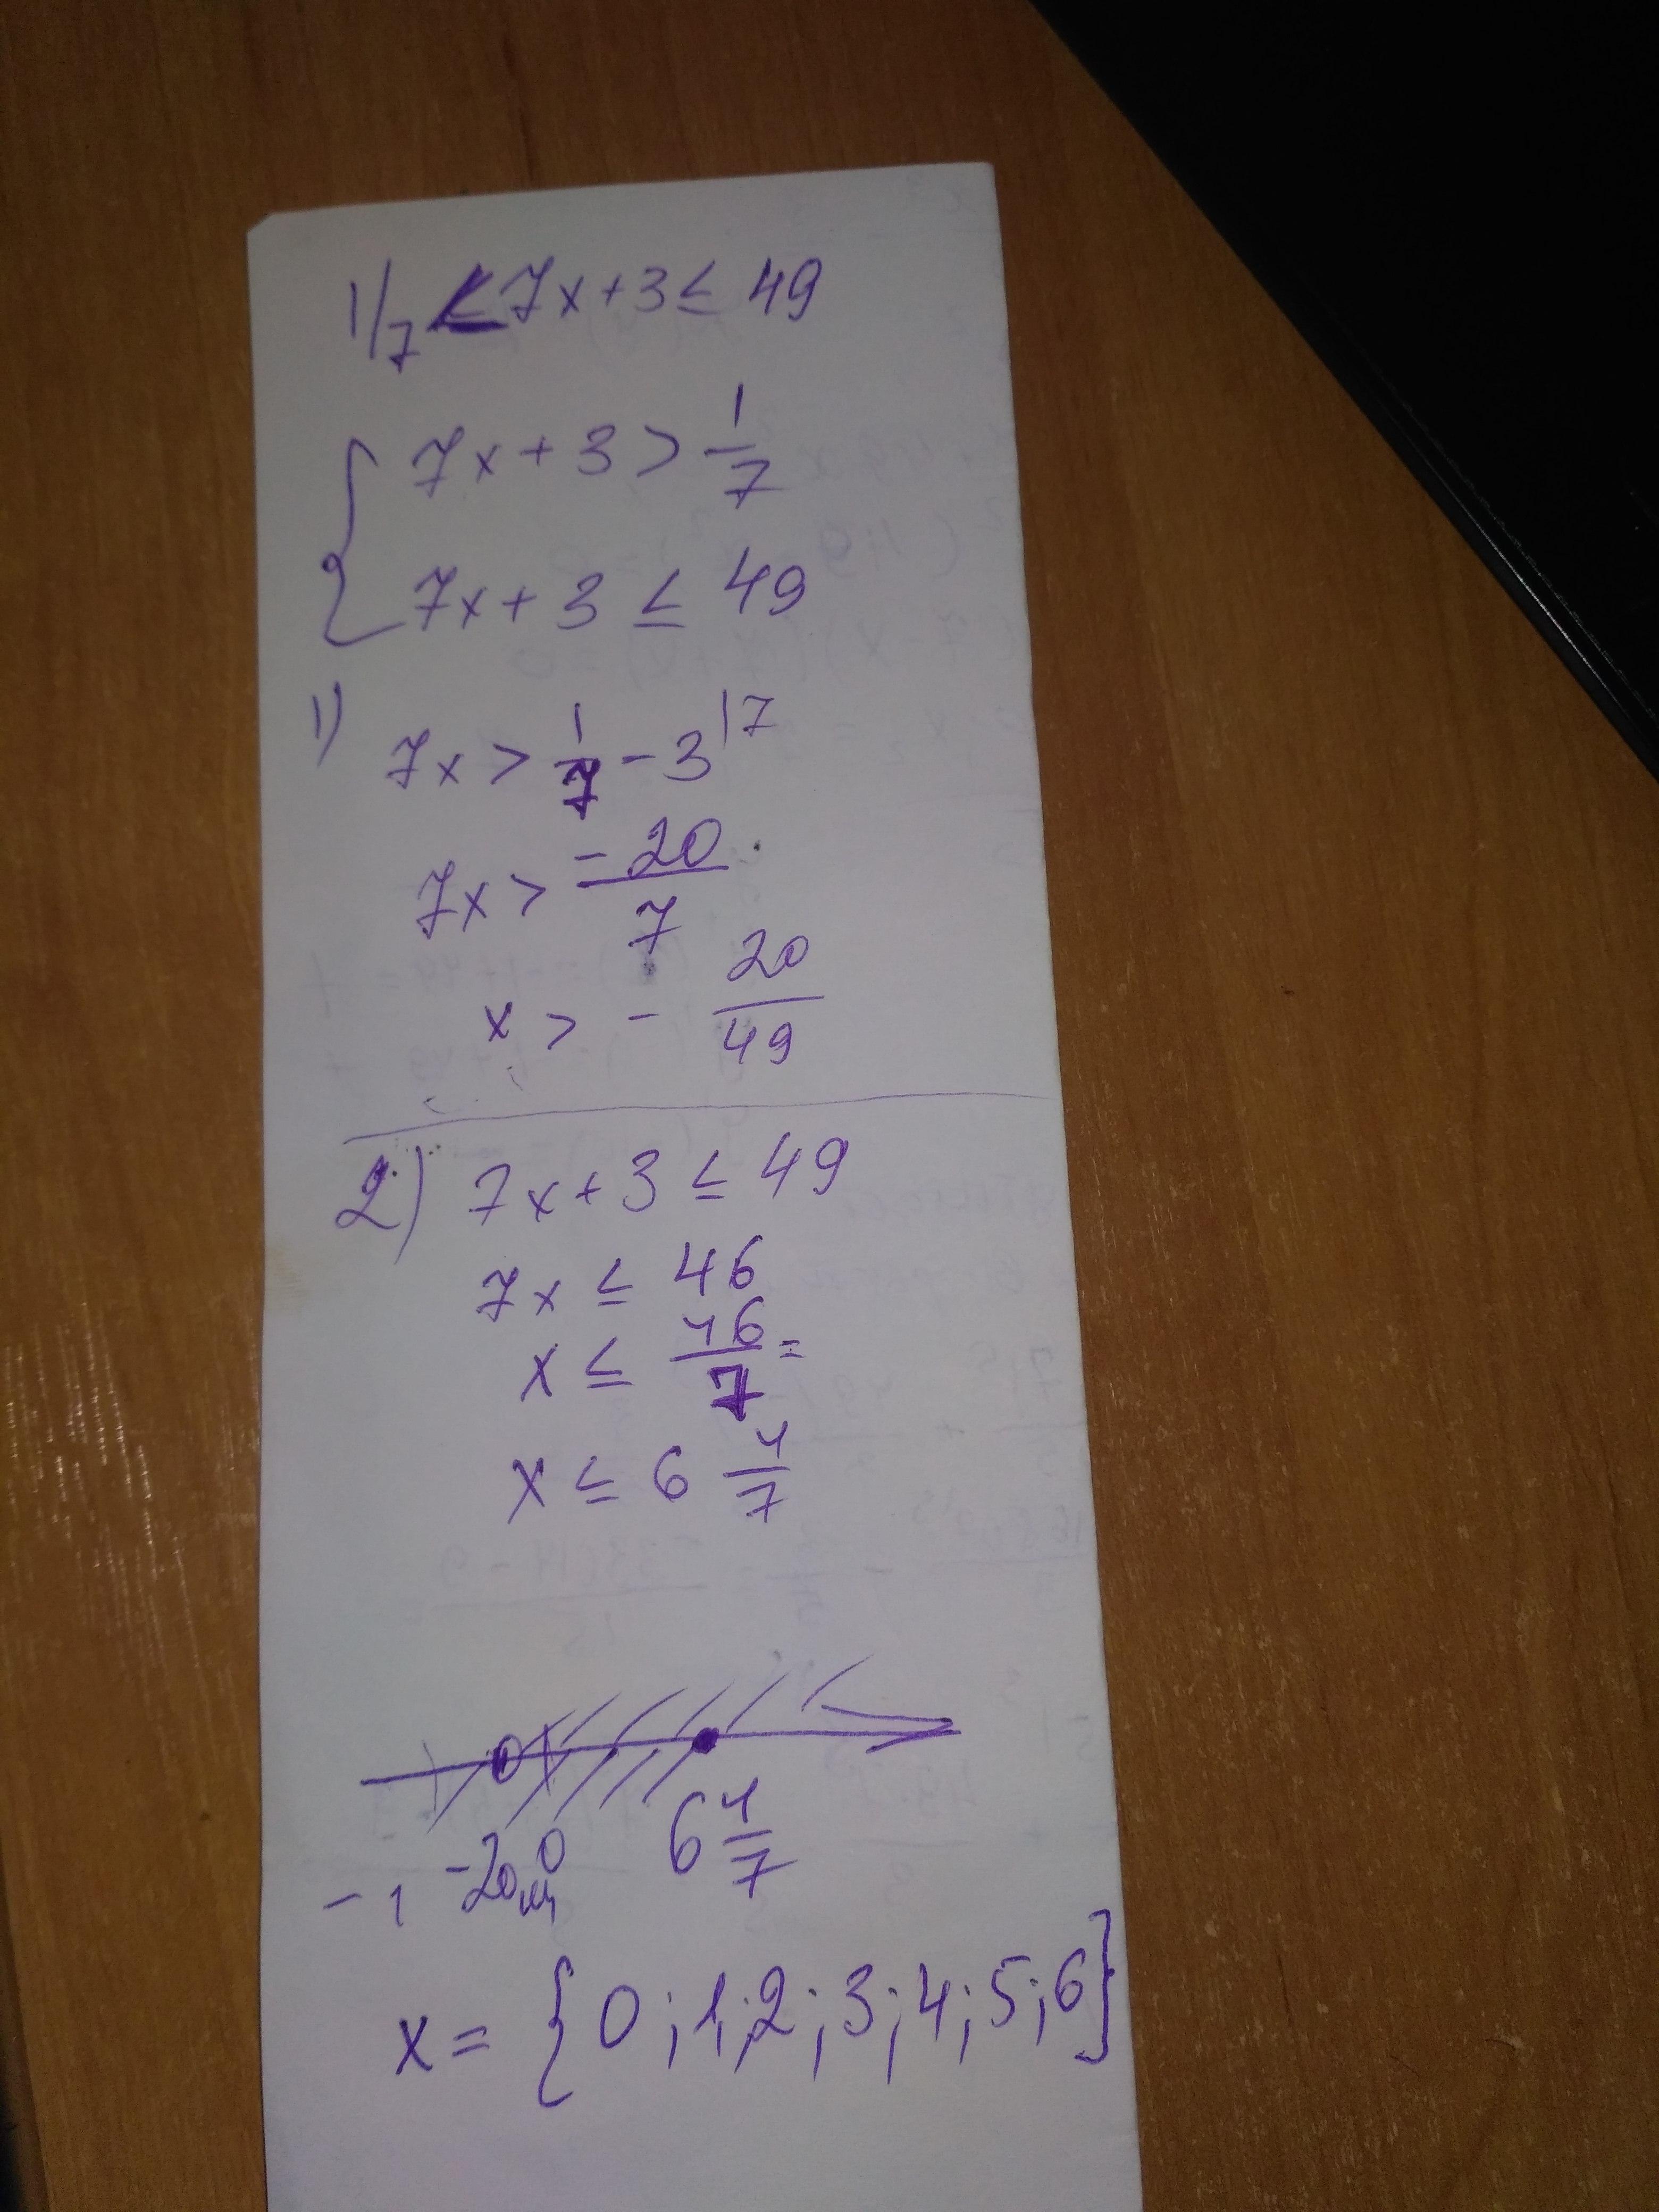 1/7 < 7x+3 ≤ 49
7x+3 > 1/7
7x+3 ≤ 49
1) 7x > 1/7 - 3 |7
7x > -20/7
x > - 20/49
2) 7x+3 ≤ 49
7x ≤ 46
x ≤ 46/7 =
x ≤ 6 4/7
-1 -20/49 0 6 4/7
x = {0; 1; 2; 3; 4; 5; 6}